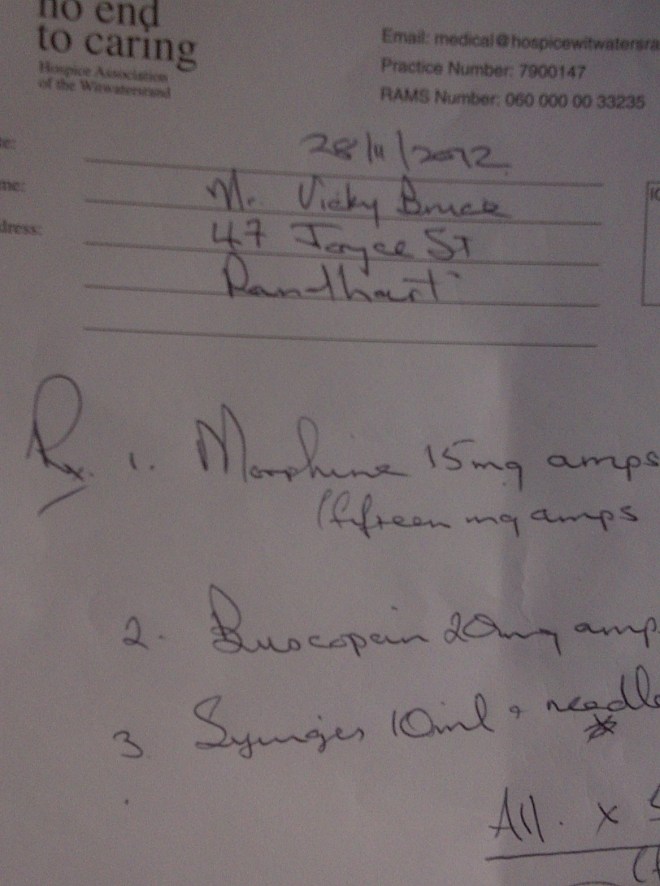 no end
to caring
Hospice Association
of the Witwatersrand
Email: medical@hospicewitwatersra
Practice Number: 7900147
RAMS Number: 060 000 00 33235
te:
28/11/2012
me:
Mr. Vicky Bruce
dress:
47 Joyce St
Randhart
Rx. 1. Morphine 15mg amps
(fifteen mg amps
2. Buscopan 20mg amp
3. Syringes 10ml + needle
All. x